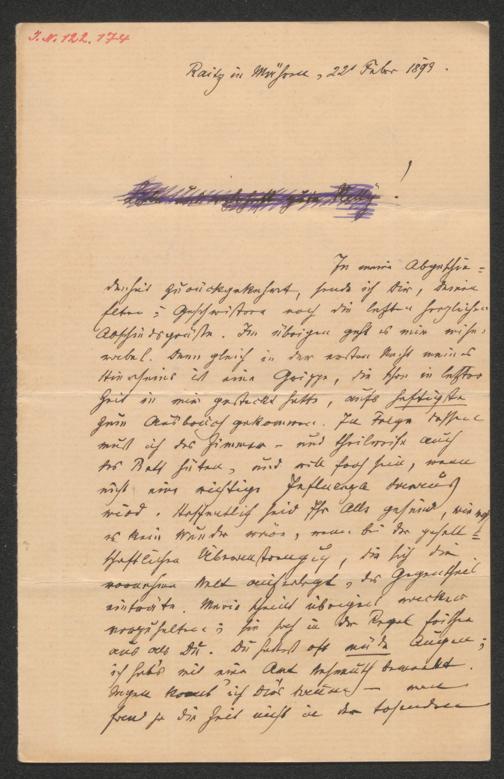 I.N. 122.174
Raitz in Mähren, 22t Feber 1893.
!
In meine Abgeschie=
denheit zurückgekehrt, sende ich Dir, Deinen
Eltern & Geschwistern noch die letzten herzlichen
Abschiedsgrüße. Im übrigen geht es mir mise=
rabel. Denn gleich in der ersten Nacht meines
Hierseins ist eine Grippe, die schon in letzter
Zeit in mir gesteckt hatte, aufs heftigste
zum Ausbruch gekommen. In Folge dessen
muß ich das Zimmer – und theilweise auch
das Bett hüten, und will froh sein, wenn
nicht eine richtige Influenza daraus
wird. Hoffentlich seid Ihr Alle gesund, wie
es kein Wunder wäre, wenn bei der gesell=
schaftlichen Überanstrengung, die sich die
vornehme Welt auferlegt, das Gegentheil
einträte. Marie scheint übrigens wacker
auszuhalten; sie sah in der Regel frischer
aus als Du. Du hattest oft müde Augen;
ich hab's mit einer Art Wehmuth bemerkt.
Sagen konnt' ich Dir's kaum – man
fand ja die Zeit nicht in dem tosenden